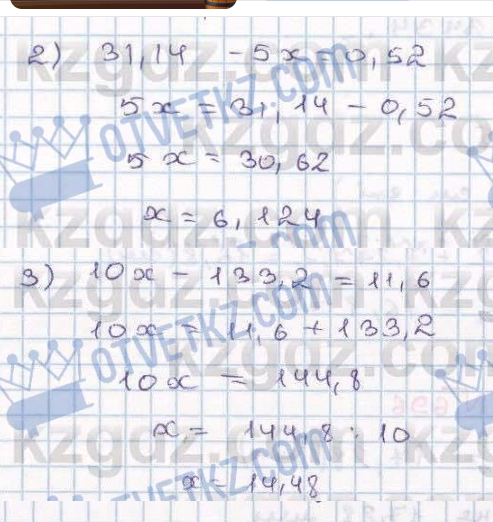 2) 31,14 - 5x = 0,52
5x = 31,14 - 0,52
5x = 30,62
x = 6,124
3) 10x - 133,2 = 11,6
10x = 11,6 + 133,2
10x = 144,8
x = 144,8 : 10
x = 14,48
kzgdz.com
OTVETKZ.COM